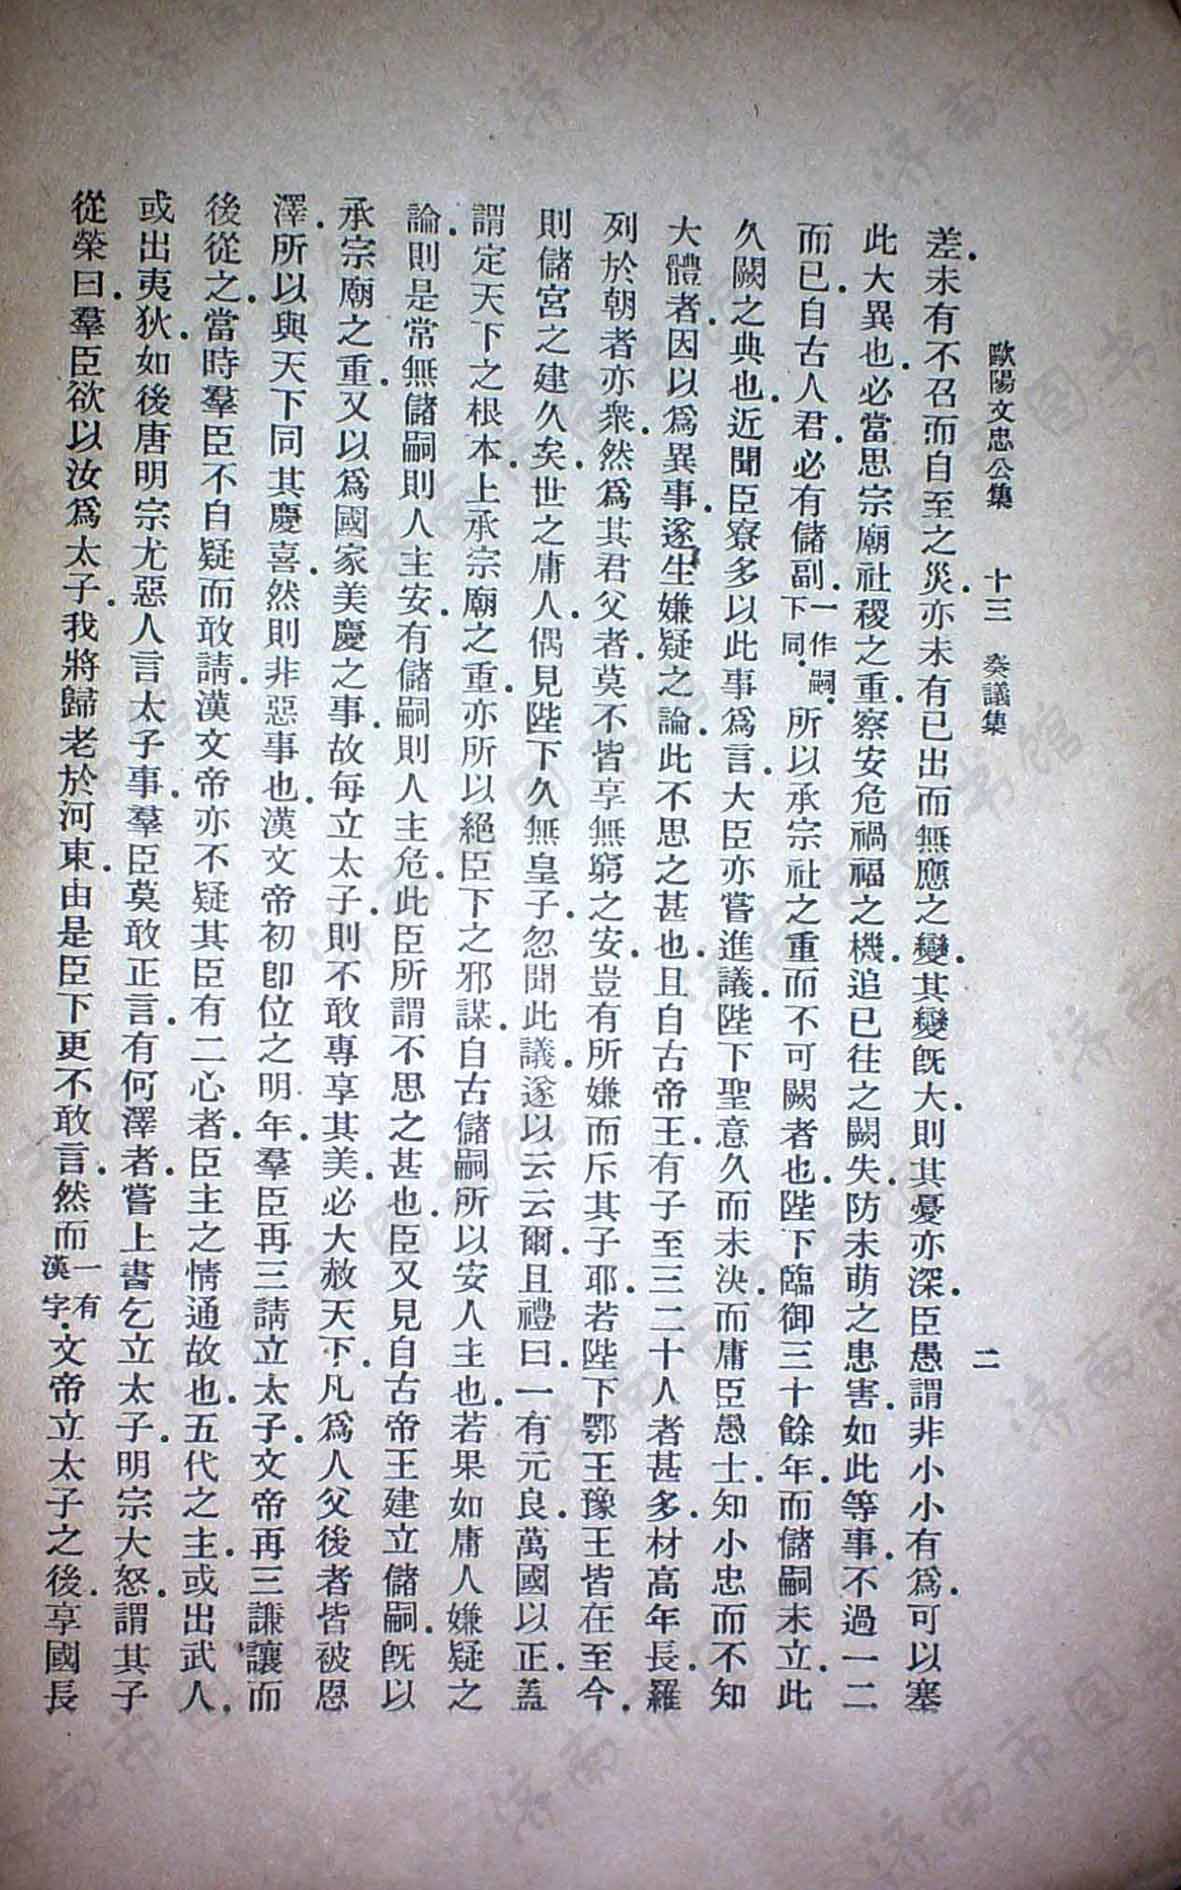 歐陽文忠公集　十三　奏議集　二
差．未有不召而自至之災．亦未有已出而無應之變．其變旣大．則其憂亦深．臣愚謂非小小有爲．可以塞
此大異也．必當思宗廟社稷之重．察安危禍福之機．追已往之闕失．防未萌之患害．如此等事．不過一二
而已．自古人君．必有儲副．一作嗣．下同．所以承宗社之重．而不可闕者也．陛下臨御三十餘年．而儲嗣未立．此
久闕之典也．近聞臣寮多以此事爲言．大臣亦嘗進議．陛下聖意久而未決．而庸臣愚士．知小忠而不知
大體者．因以爲異事．遂生嫌疑之論．此不思之甚也．且自古帝王．有子至三二十人者甚多．材高年長．羅
列於朝者亦衆．然爲其君父者．莫不皆享無窮之安．豈有所嫌而斥其子耶．若陛下鄂王豫王皆在至今．
則儲宮之建久矣．世之庸人．偶見陛下久無皇子．忽聞此議．遂以云云爾．且禮曰．一有元良．萬國以正．蓋
謂定天下之根本．上承宗廟之重．亦所以絕臣下之邪謀．自古儲嗣．所以安人主也．若果如庸人嫌疑之
論．則是常無儲嗣則人主安．有儲嗣則人主危．此臣所謂不思之甚也．臣又見自古帝王建立儲嗣．旣以
承宗廟之重．又以爲國家美慶之事．故每立太子．則不敢專享其美．必大赦天下．凡爲人父後者皆被恩
澤．所以與天下同其慶喜．然則非惡事也．漢文帝初卽位之明年．羣臣再三請立太子．文帝再三謙讓而
後從之．當時羣臣不自疑而敢請．漢文帝亦不疑其臣有二心者．臣主之情通故也．五代之主．或出武人．
或出夷狄．如後唐明宗尤惡人言太子事．羣臣莫敢正言．有何澤者．嘗上書乞立太子．明宗大怒．謂其子
從榮曰．羣臣欲以汝爲太子．我將歸老於河東．由是臣下更不敢言．然而一有漢字．文帝立太子之後．享國長